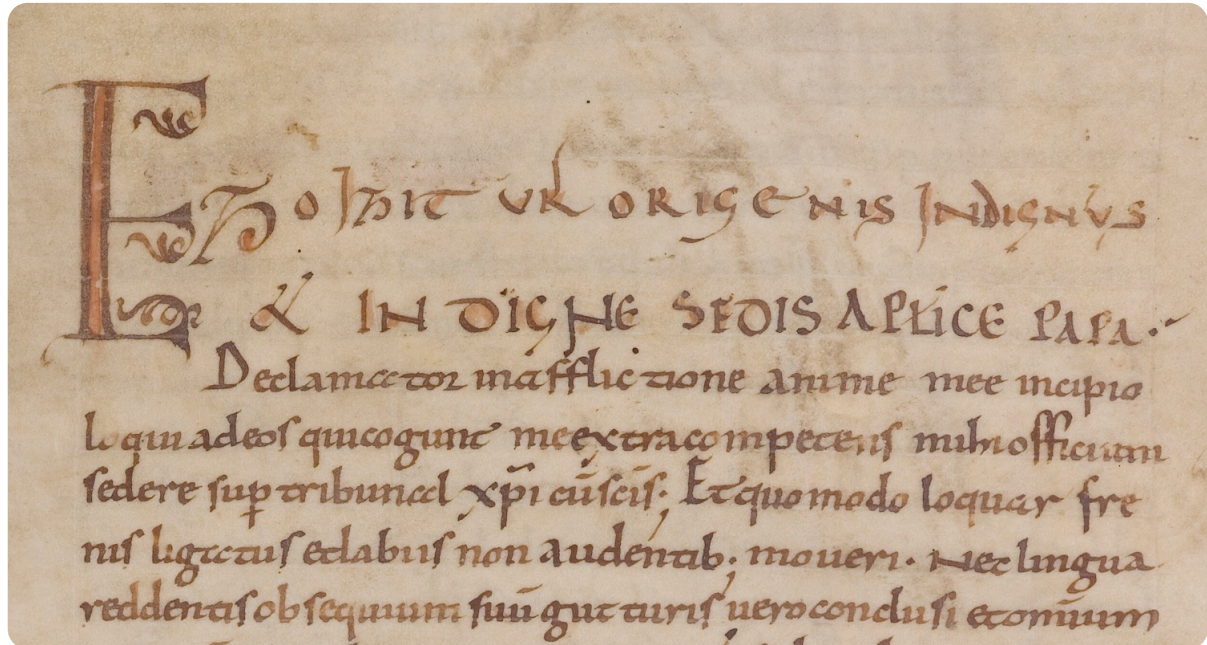 ORIGENIS INDIGNUS
& INDIGNE SEDIS APLICE PAPA.
Declamator in afflictione anime mee incipio
loqui ad eos qui cogunt me extra competens mihi officium
sedere suꝑ tribunal xp̄i cū sc̄is; Et quomodo loquar fre
nis ligatus et labiis non audentib; moueri. Nec lingua
reddentis obsequium suū gutturis uero conclusi et om̄ium